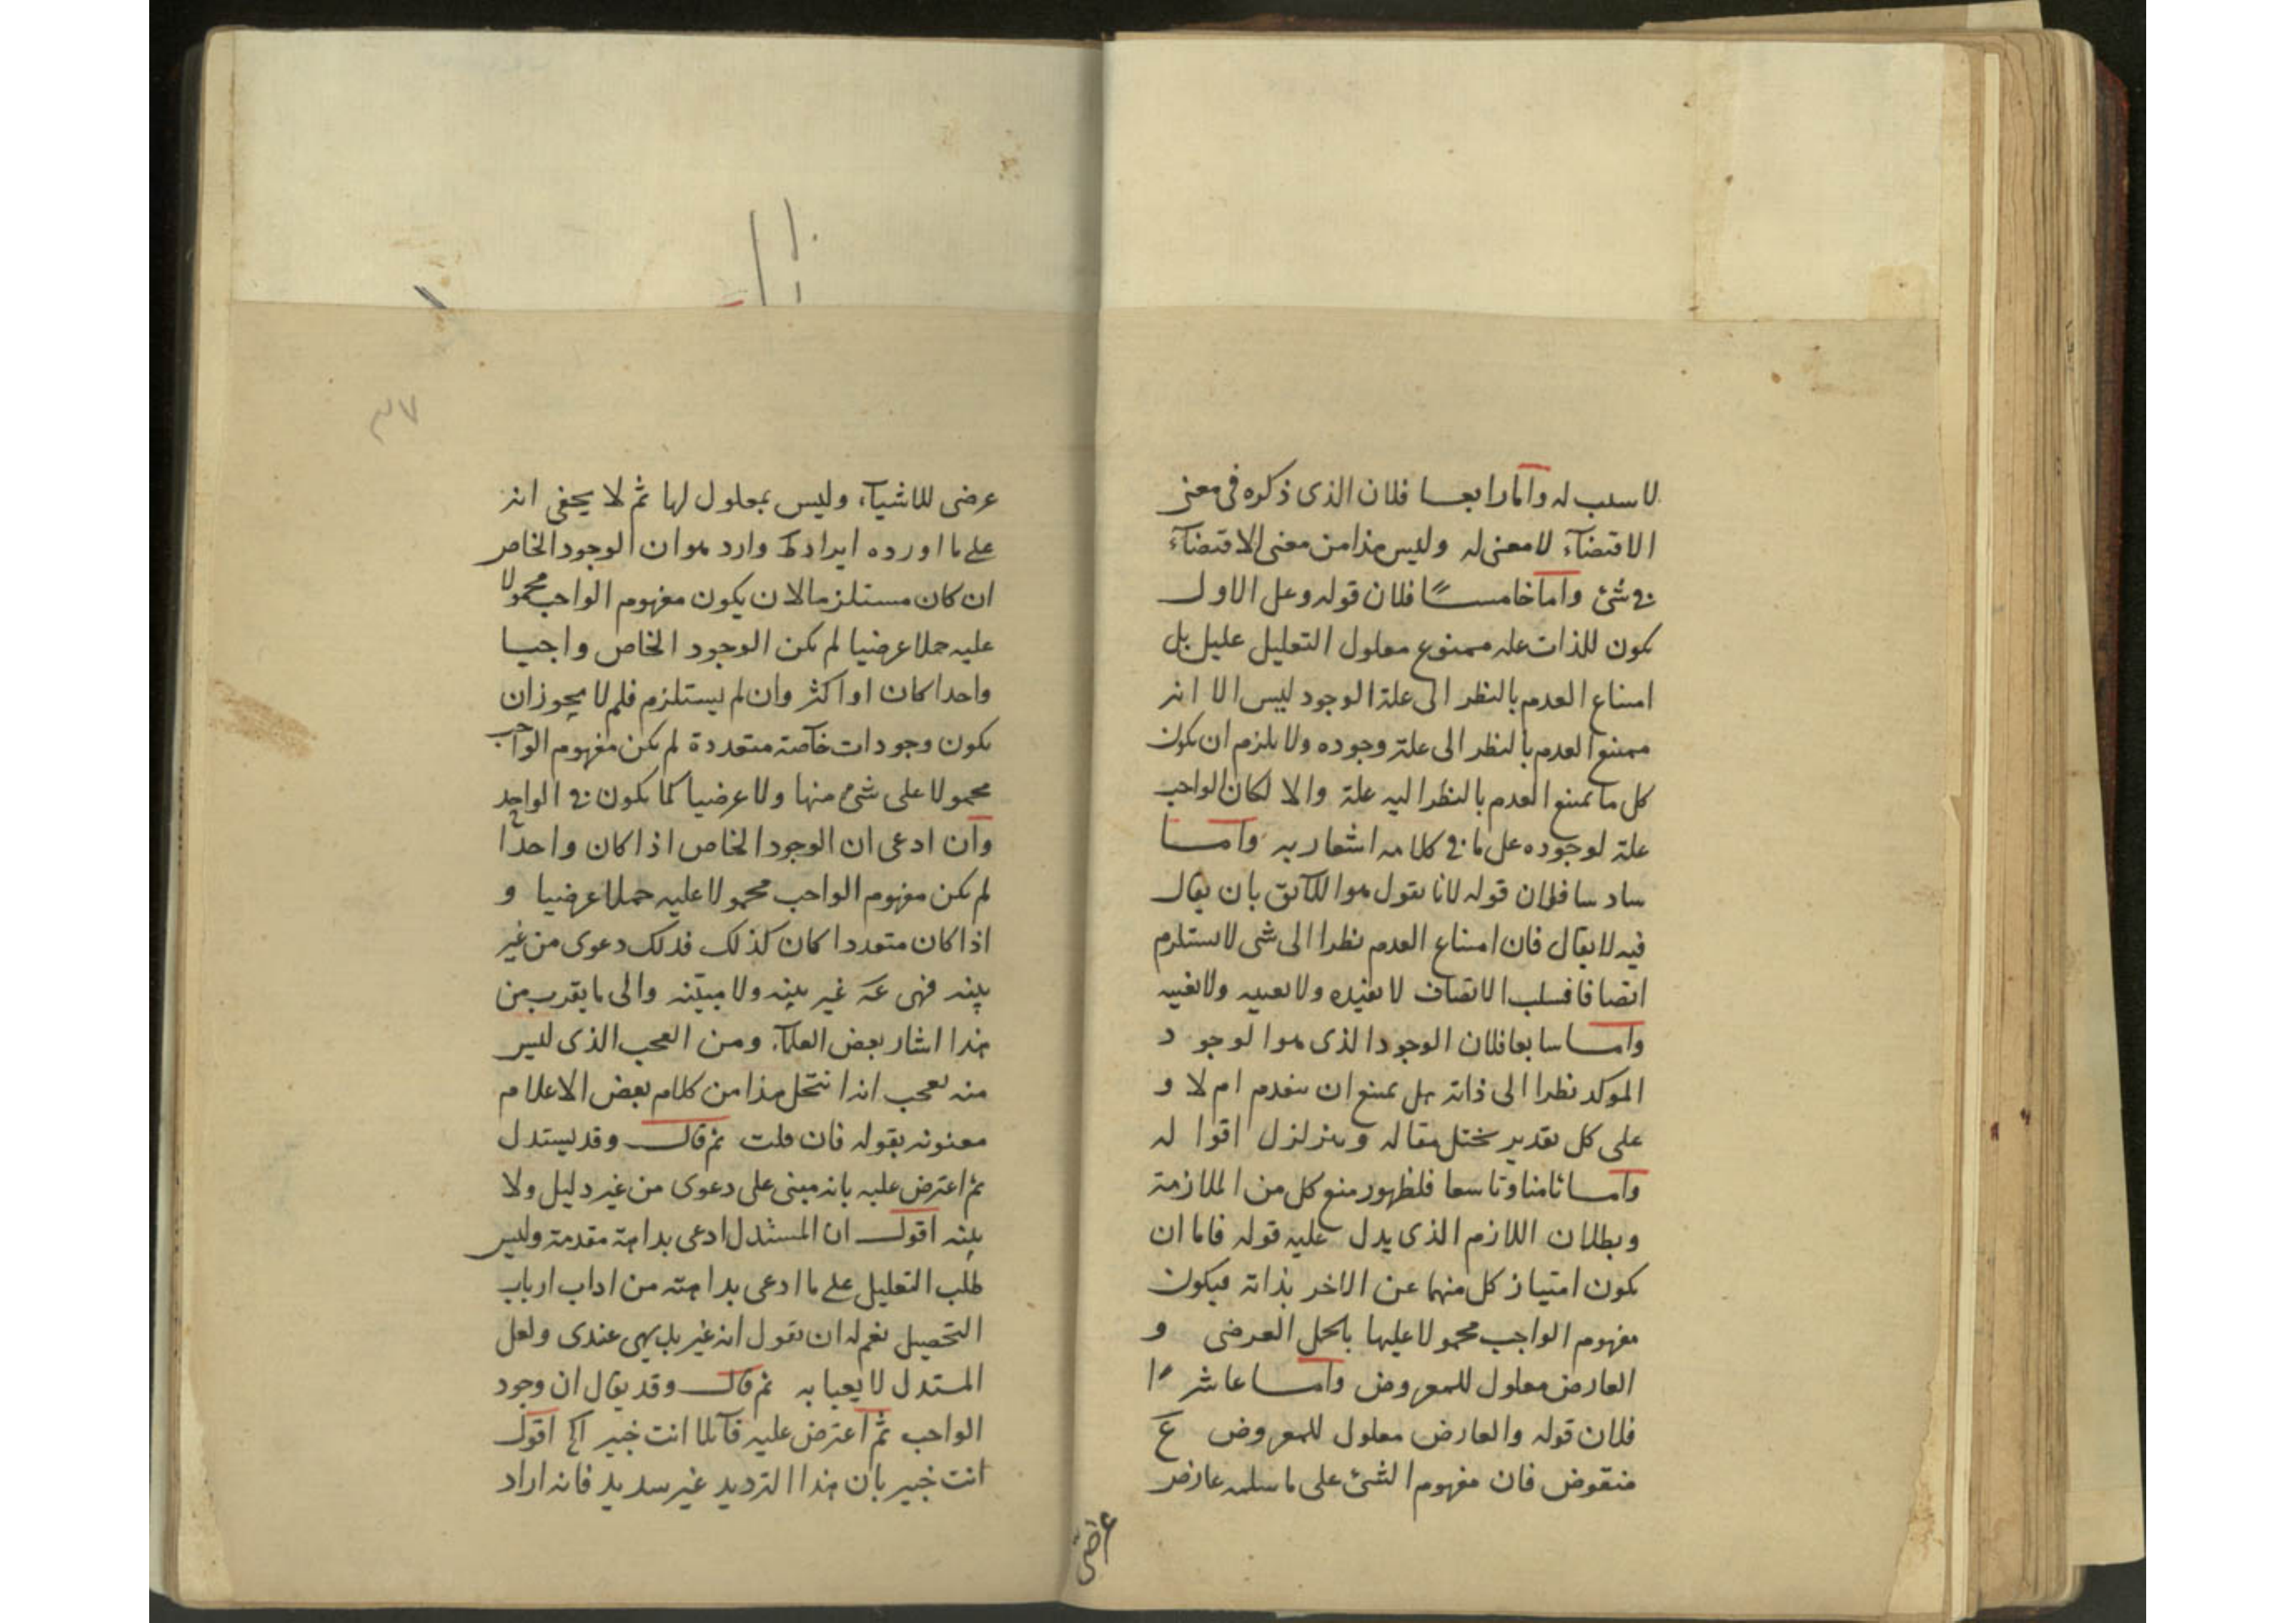 لا سلب له واما رابعا فلان الذى ذكره فى معنى
الاقتضآء لا معنى له وليس هذا من معنى الاقتضآء
فى شئ واما خامسًا فلان قوله وعلى الاول
يكون للذات علة ممنوع معلول التعليل عليل بل
امتناع العدم بالنظر الى علة الوجود ليس الا انه
ممتنع العدم بالنظر الى علة وجوده ولا يلزم ان يكون
كل ما يمتنع العدم بالنظر اليه علة والا لكان الواجب
علة لوجوده على ما فى كلامه اشعار به واما
سادسا فلان قوله لانا نقول هو اللآئق بان يقال
فيه لا يقال فان امتناع العدم نظرا الى شى لا يستلزم
اتصافا فسلب الاتصاف لا يفيده ولا يعيبه ولا يغيبه
واما سابعا فلان الوجود الذى هو الوجود
الموكد نظرا الى ذاته هل يمتنع ان ينعدم ام لا و
على كل تقدير يختل مقاله ويتزلزل اقواله
واما ثامنا وتاسعا فلظهور منع كل من الملازمة
وبطلان اللازم الذى يدل عليه قوله فاما ان
يكون امتياز كل منهما عن الاخر بذاته فيكون
مفهوم الواجب محمولا عليها بالحمل العرضى و
العارض معلول للمعروض واما عاشرًا
فلان قوله والعارض معلول للمعروض ع
منقوض فان مفهوم الشئ على ما سلمه عارض
عرضى
٣٧
عرضى للاشيآء وليس بمعلول لها ثم لا يخفى انه
على ما اورده ايرادك وارد هو ان الوجود الخاص
ان كان مستلزما لان يكون مفهوم الواجب محمولا
عليه حملا عرضيا لم يكن الوجود الخاص واجبا
واحدا كان او اكثر وان لم يستلزم فلم لا يجوز ان
يكون وجودات خآصة متعددة لم يكن مفهوم الواجب
محمولا على شئ منها ولا عرضيا كما يكون فى الواحد
وان ادعى ان الوجود الخاص اذا كان واحدا
لم يكن مفهوم الواجب محمولا عليه حملا عرضيا و
اذا كان متعددا كان كذلك فذلك دعوى من غير
بينه فهى غير بينه ولا مبيّنه والى ما يقرب من
هذا اشار بعض العلمآء ومن العجب الذى ليس
منه عجب انه انتحل هذا من كلام بعض الاعلام
معنونه بقوله فان قلت ثم قال وقد يستدل
ثم اعترض عليه بانه مبنى على دعوى من غير دليل ولا
بينه اقول ان المستدل ادعى بداهة مقدمة وليس
طلب التعليل على ما ادعى بداهته من اداب ارباب
التحصيل نعم له ان نقول انه غير بديهى عندى ولعل
المستدل لا يعبا به ثم قال وقد يقال ان وجود
الواجب ثم اعترض عليه قآئلا انت خبير الخ اقول
انت خبير بان هذا الترديد غير سديد فانه اراد